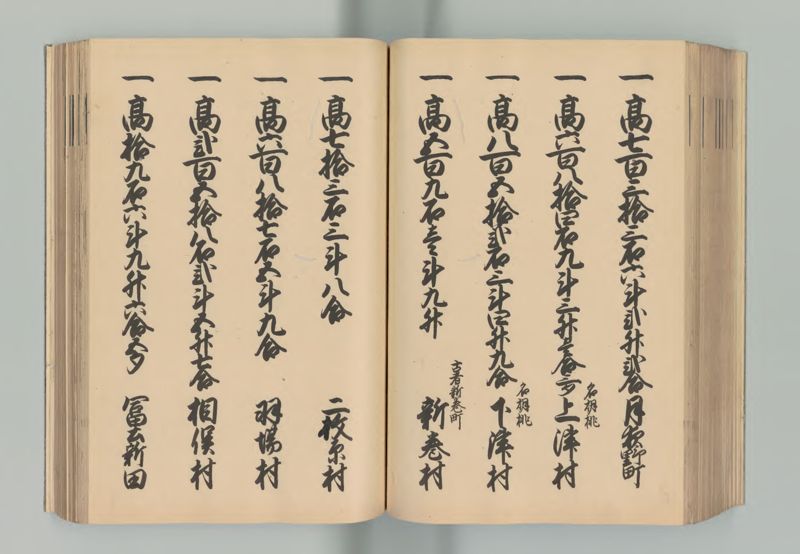 一 高七百三拾三石六斗弐升弐合 月夜野町
一 高六百八拾四石九斗三升壱合夕 名胡桃 上津村
一 高八百五拾弐石三斗四升九合 名胡桃 下津村
一 高五百九石壱斗九升 古者新巻町 新巻村
一 高七拾三石三斗八合 二枚原村
一 高六百八拾七石五斗九合 羽場村
一 高弐百五拾八石弐斗五升七合 相俣村
一 高拾九石六斗九升六合 冨士新田